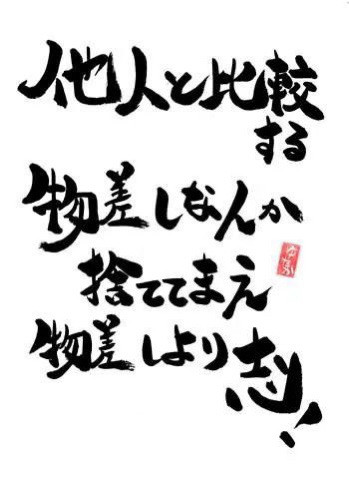 他人と比較
する
物差しなんか
捨ててまえ
物差しより志!
ゆたか